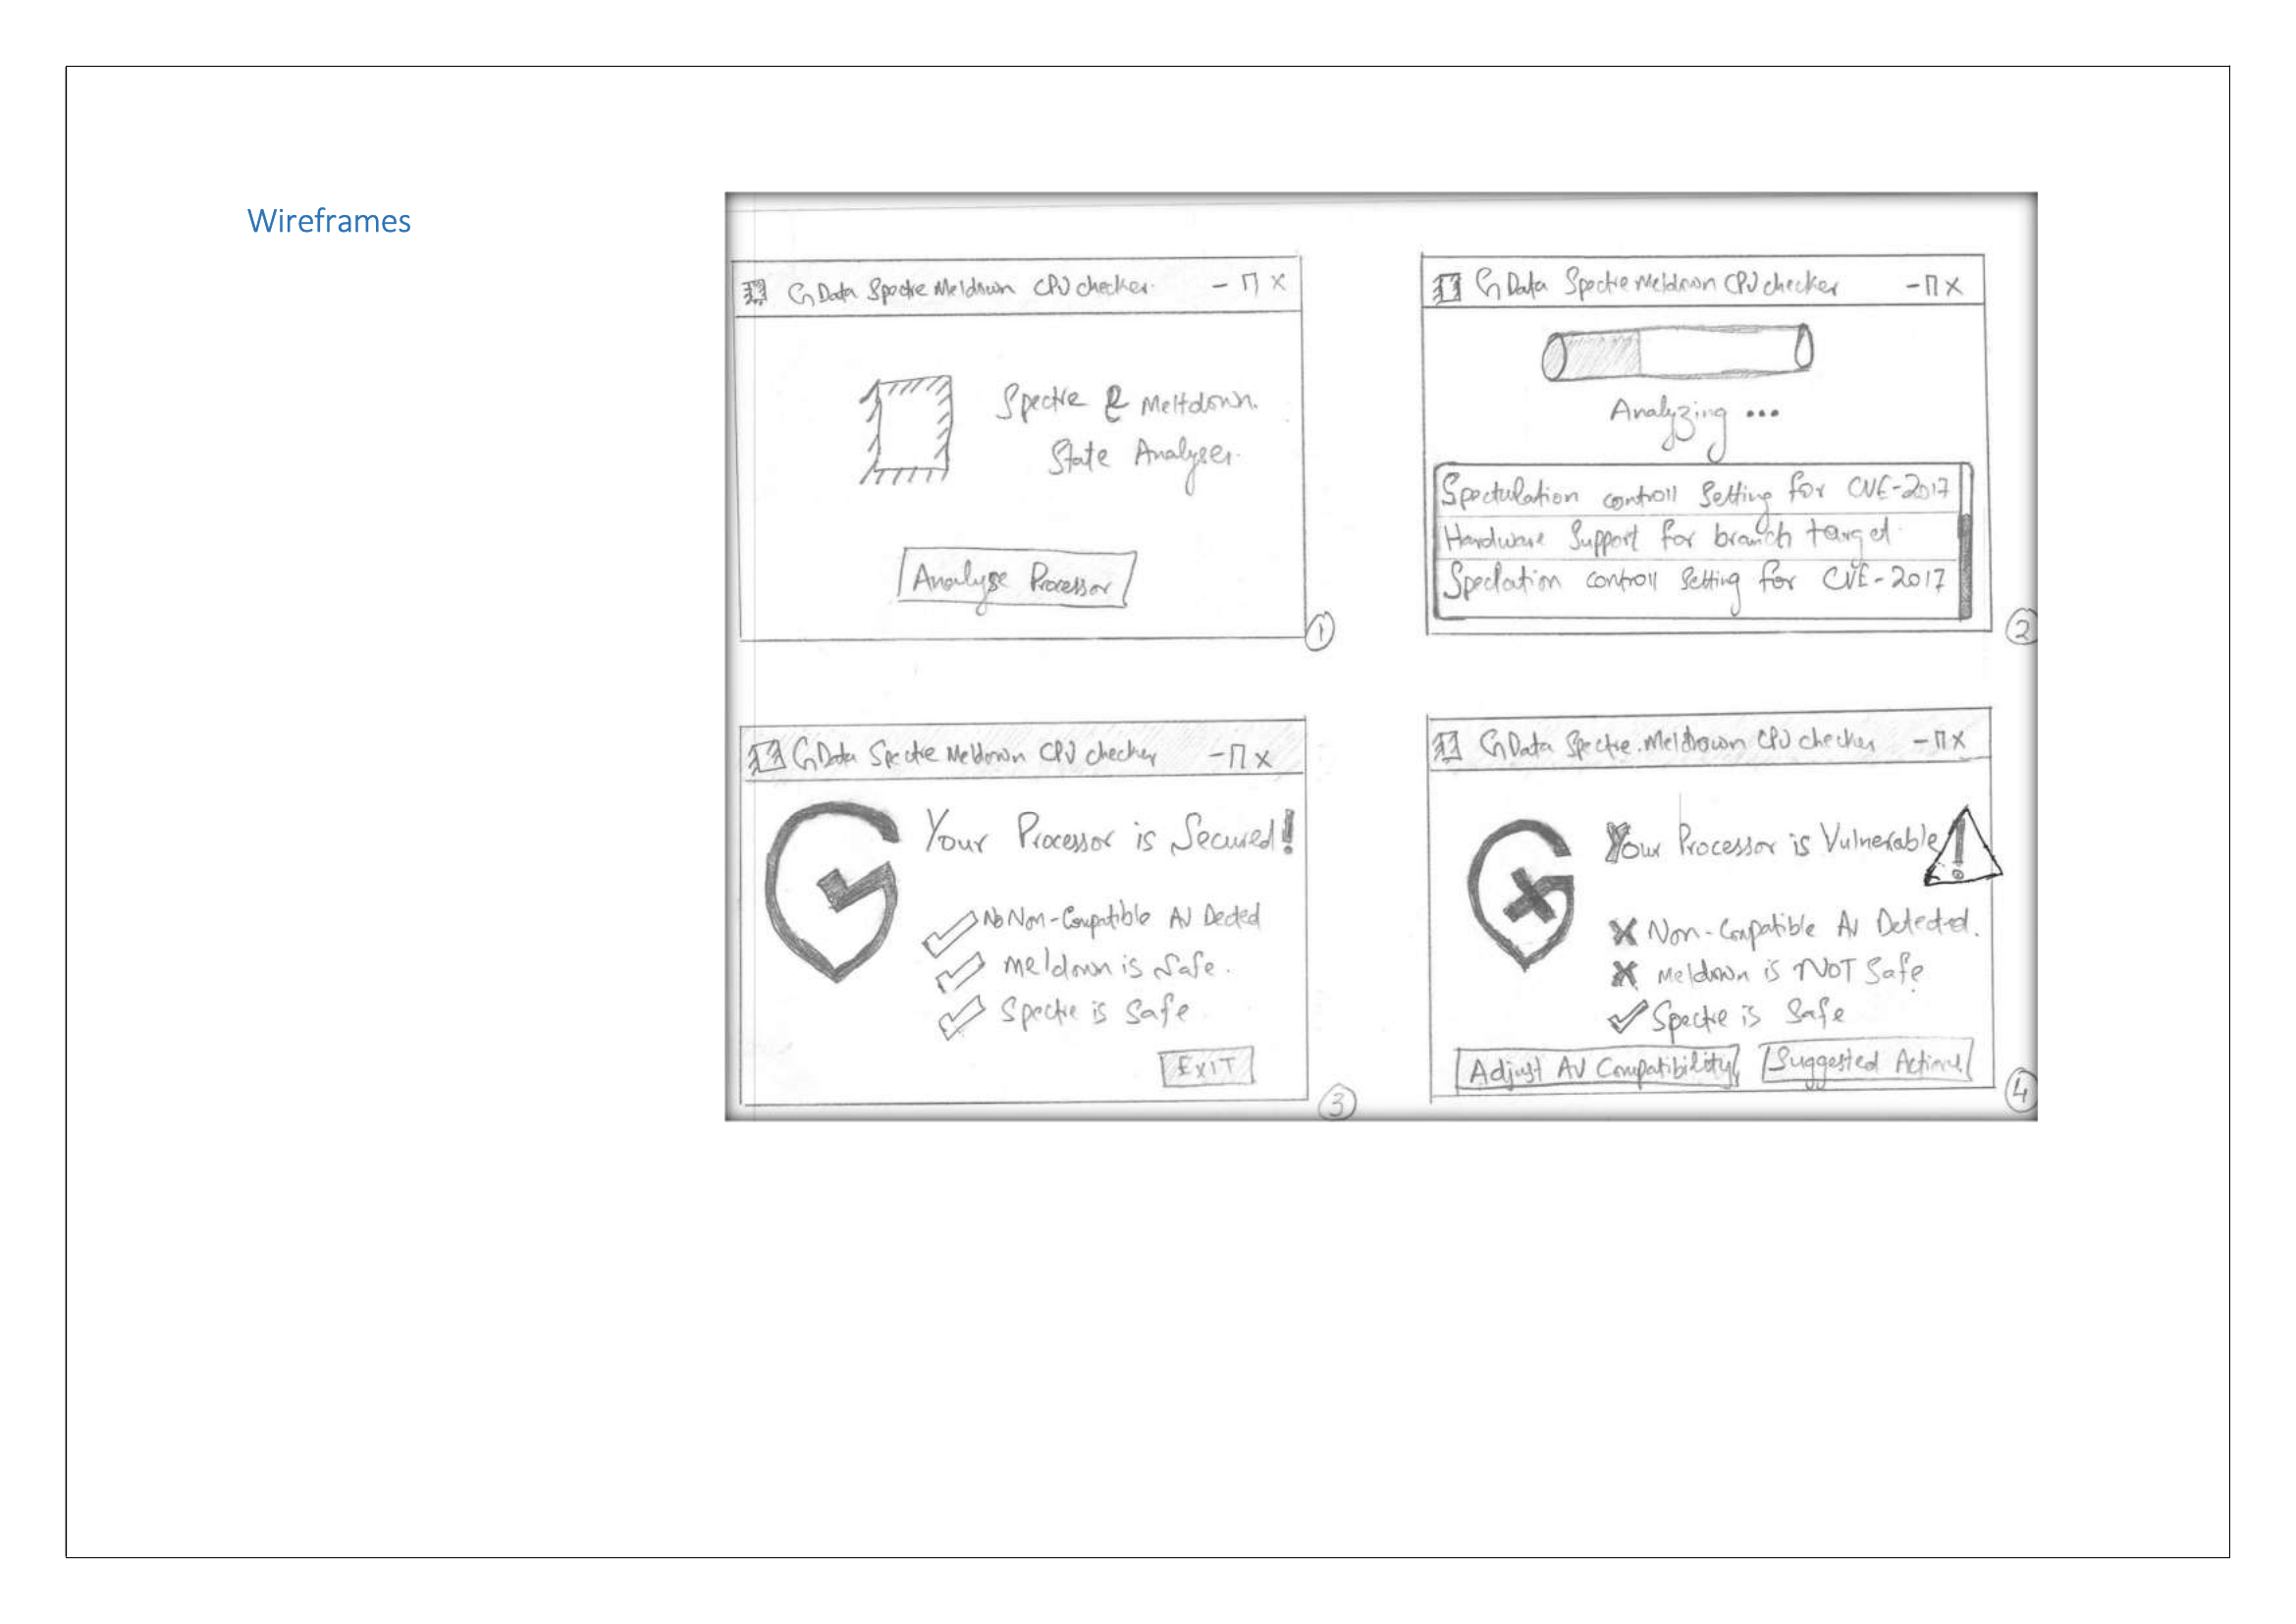 Wireframes
G Data Spectre Meldown CPU checker. - П X
Spectre & Meltdown.
State Analyser.
Analyse Processor
1
G Data Spectre Meldown CPU checker - П X
Analyzing ...
Spectulation controll Setting for CVE-2017
Hardware Support for branch target
Speclation controll Setting for CVE-2017
2
G Data Spectre Meldown CPU checker - П X
Your Processor is Secured!
No Non-Compatible AV Dected
Meldown is Safe.
Spectre is Safe
EXIT
3
G Data Spectre Meldown CPU checker - П X
Your Processor is Vulnerable !
X Non-Compatible AV Detected.
X Meldown is NOT Safe
Spectre is Safe
Adjust AV Compatibility Suggested Actions
4